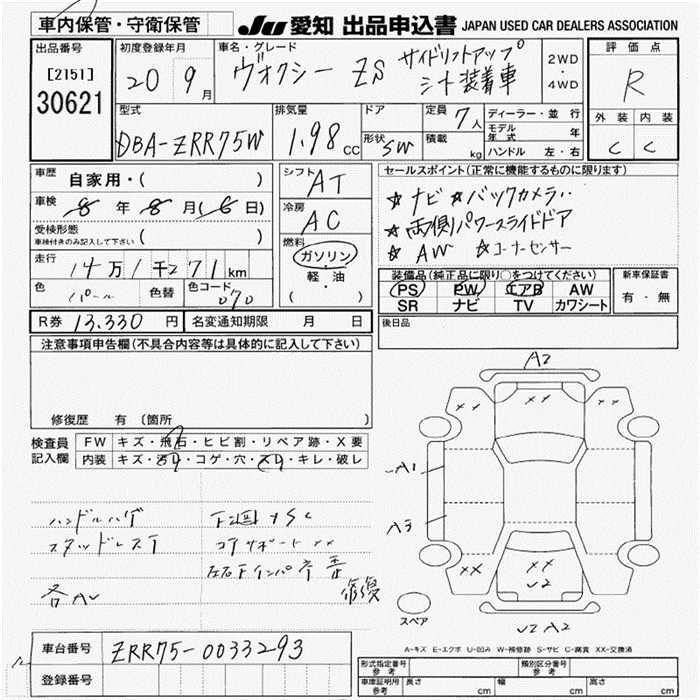 車内保管・守衛保管
JU 愛知 出品申込書 JAPAN USED CAR DEALERS ASSOCIATION
出品番号
[2151]
30621
初度登録年月
20 9月
車名・グレード
ヴォクシー ZS サイドリフトアップ
シート装着車
2WD
・
4WD
評価点
R
外装 内装
C C
型式
DBA-ZRR75W
排気量
1.98 CC
ドア
形状 SW
定員 7人
積載 kg
ディーラー・並行
モデル年式 年
ハンドル 左・右
車歴 自家用・( )
車検 8年8月(6日)
受検形態
車検付きのみ記入して下さい ( )
走行 14万1千271km
色 パール 色替 色コード 070
シフト AT
冷房 AC
燃料
ガソリン
・
軽・油
( )
セールスポイント(正常に機能するものに限ります)
☆ナビ ☆バックカメラ
☆両側パワースライドドア
☆AW ☆コーナーセンサー
装備品(純正品に限り○をつけてください)
PS PW エアB AW
SR ナビ TV カワシート
新車保証書
有・無
R券 13.330円 名変通知期限 月 日
後日品
注意事項申告欄(不具合内容等は具体的に記入して下さい)
修復歴 有 〔箇所 〕
検査員
記入欄
FW キズ・飛石・ヒビ割・リペア跡・X要
内装 キズ・汚れ・コゲ・穴・スレ・キレ・破レ
ハンドルハゲ
スタッドレスT
各AU
下廻りSC
コアサポートXX
修復
A2
XX XX
A1
A3
XX XX
U2
スペア
U2 A2
A-キズ E-エクボ U-凹み W-補修跡 S-サビ C-腐食 XX-交換済
車台番号 ZRR75-0033293
登録番号
形式指定番号
参考
類別区分番号
参考
車庫証明用
参考
長さ cm 幅 cm 高さ cm